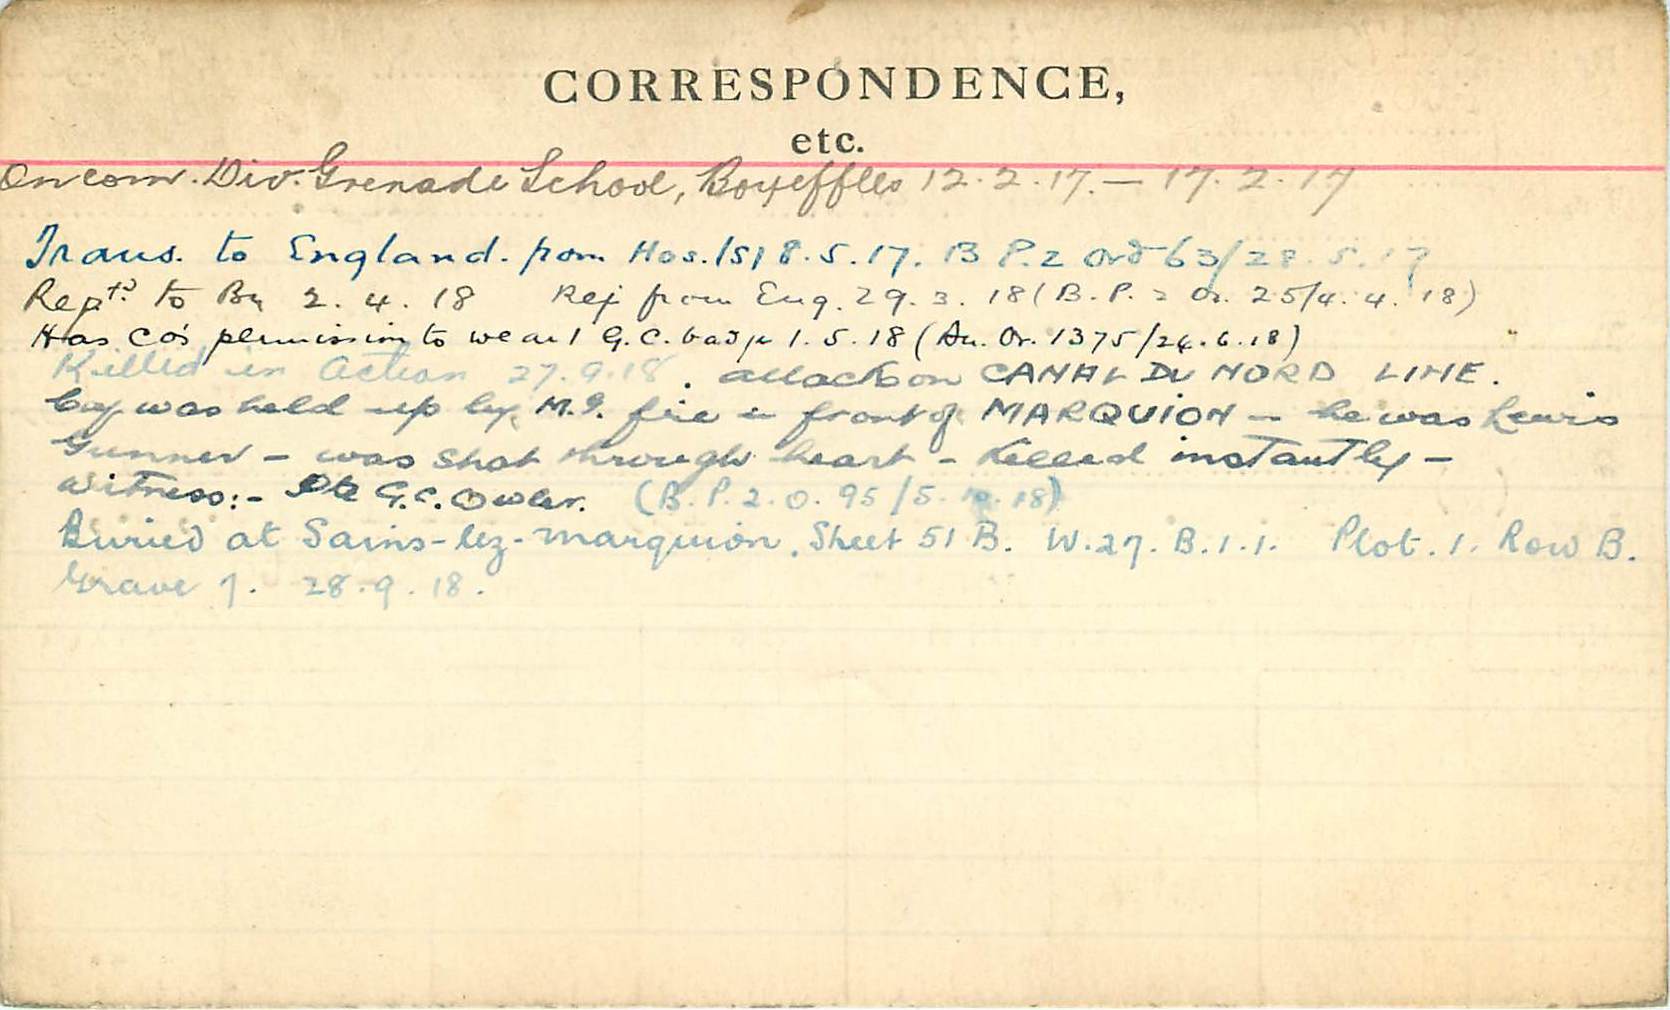 CORRESPONDENCE,
etc.
On com. Div. Grenade School, Boyeffles 12.2.17. — 17.2.17
Trans. to England. from Hos. 18.5.17. B P.2 Ord 63/28.5.17
Rept'd to Bn 2.4.18 Rej from Eng. 29.3.18 (B.P. 2 Or. 25/4.4.18)
Has CO's permission to wear 1 G.C. badge 1.5.18 (Au. Or. 1375/24.6.18)
Killed in Action 27.9.18. attack on CANAL DU NORD LINE.
Coy was held up by M.G. fire in front of MARQUION — he was Lewis
Gunner — was shot through heart — killed instantly —
Witness:- Pte G.C. Owler. (B.P.2.O. 95/5.10.18)
Buried at Sains-lez-Marquion. Sheet 51 B. W.27.B.1.1. Plot. 1. Row B.
Grave 7. 28.9.18.